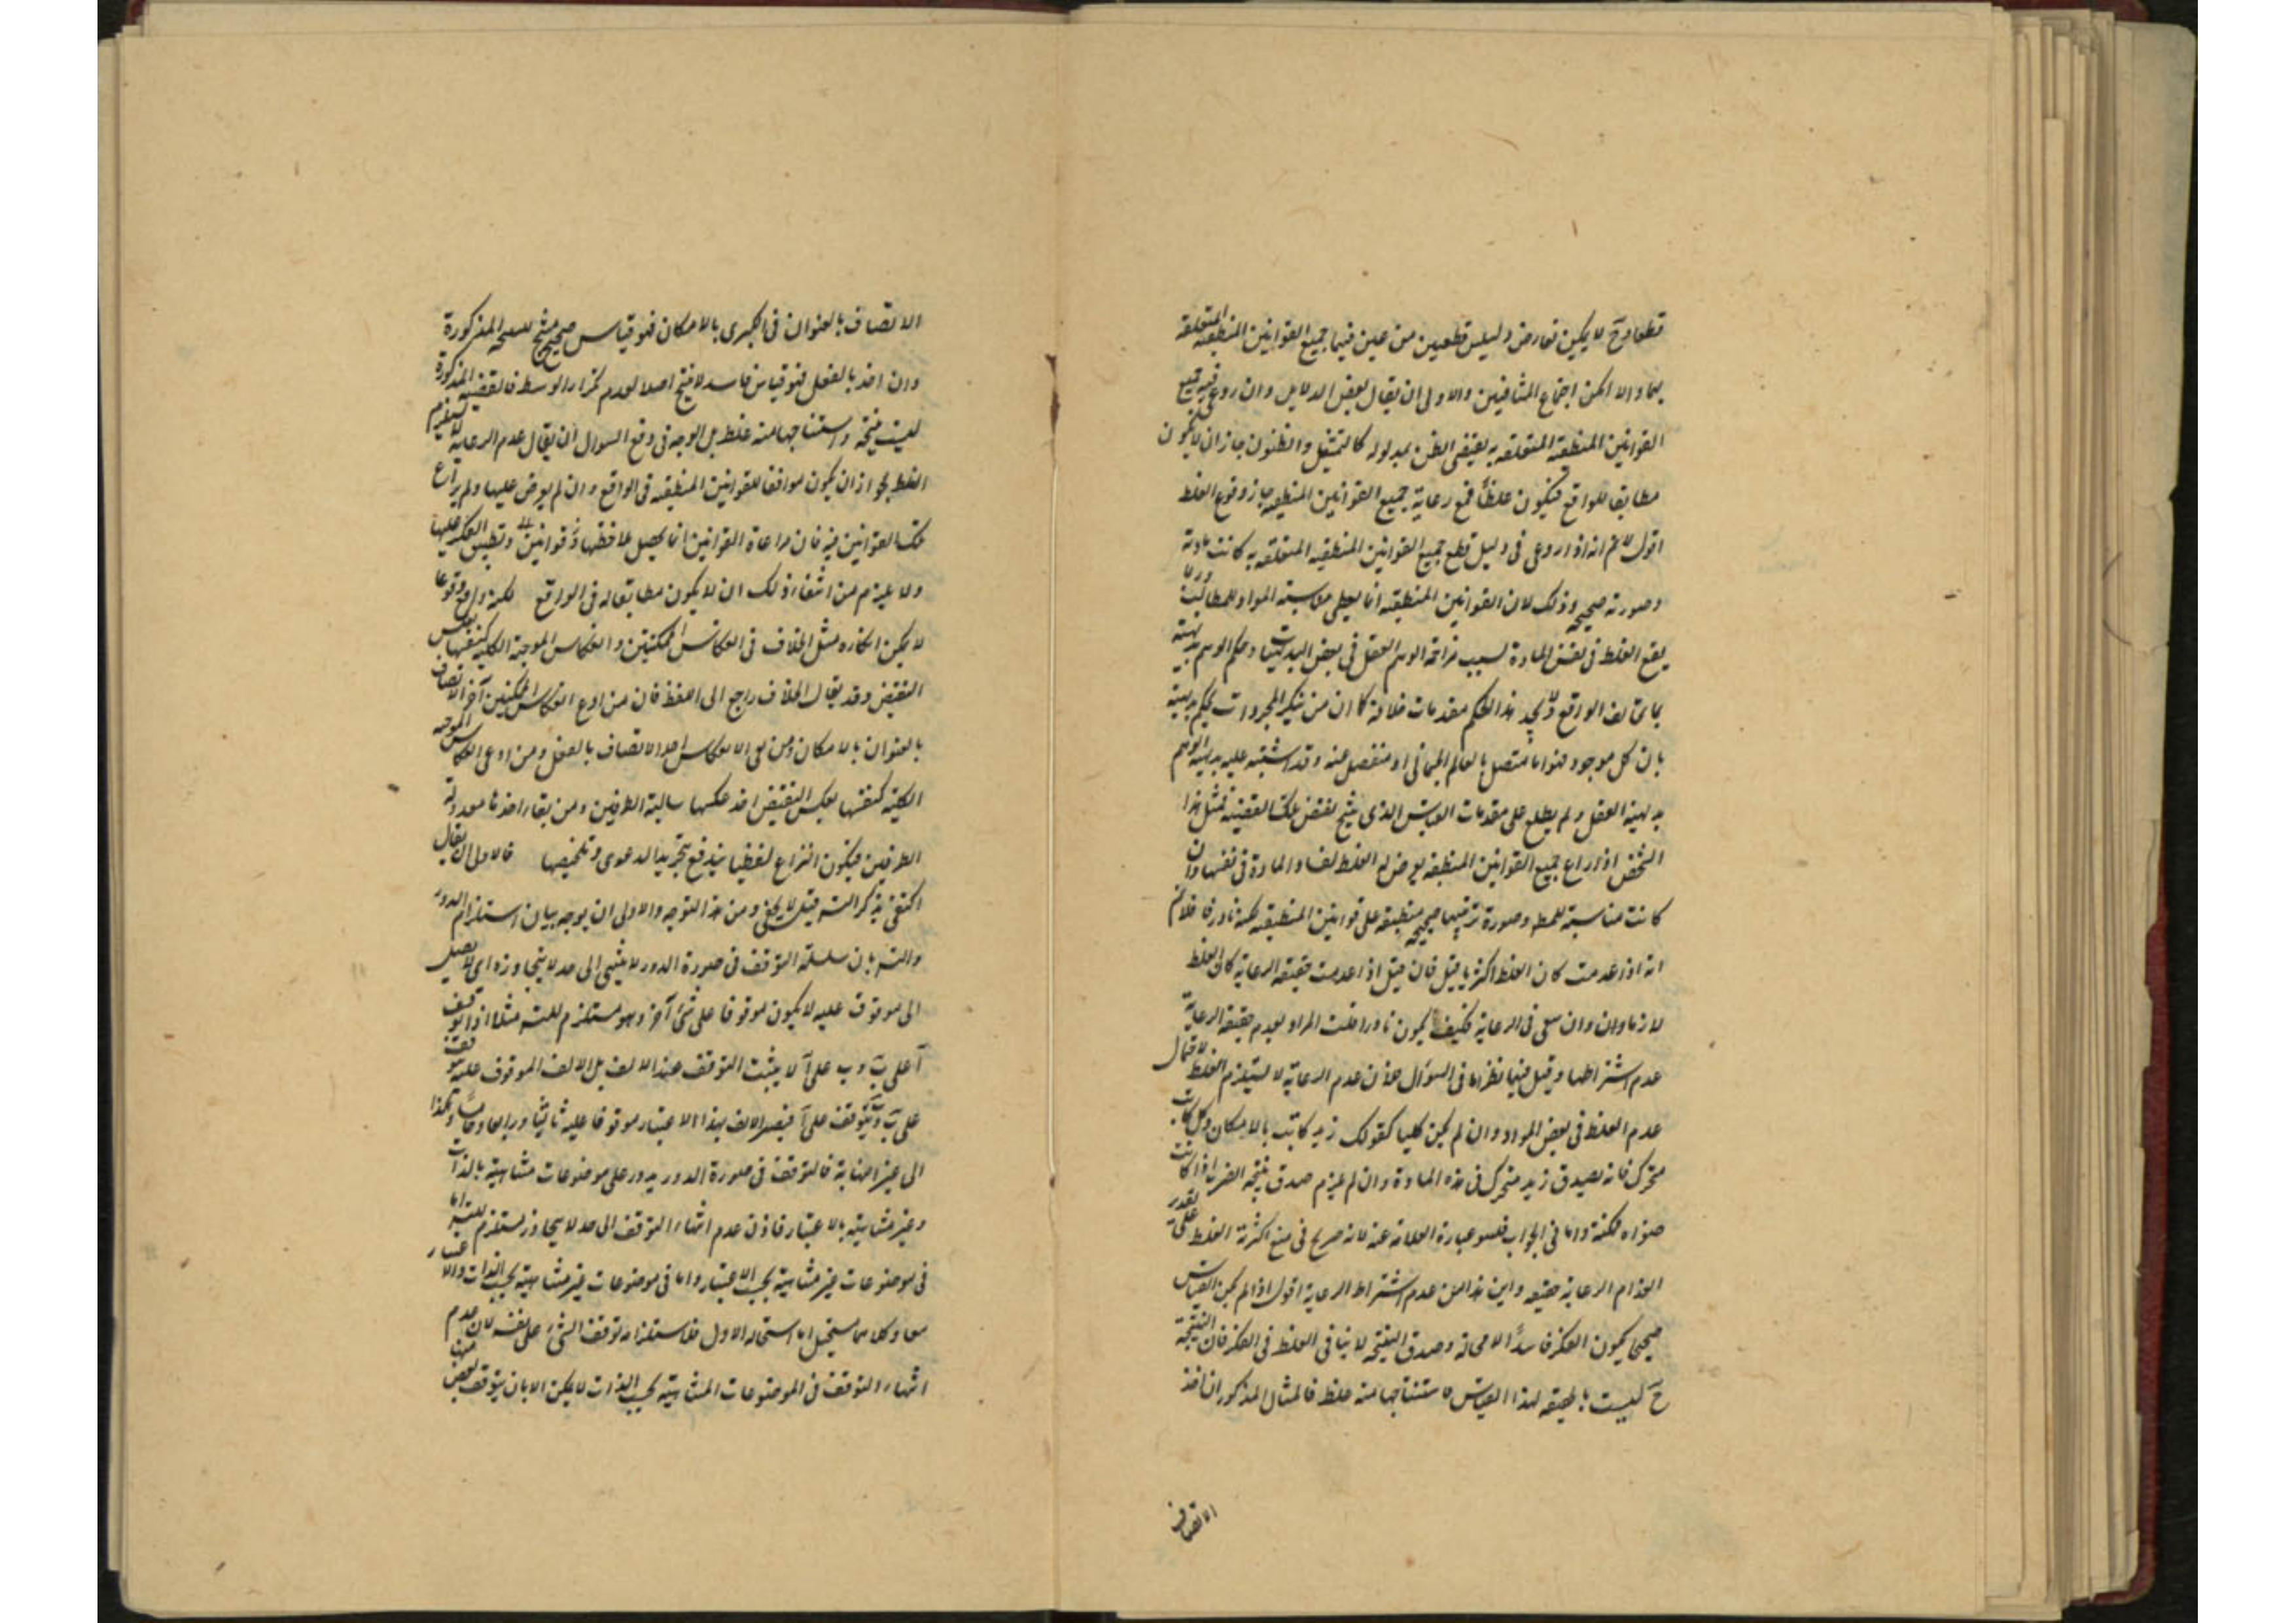 قطعا وح لا يمكن تعارض دليلين قطعيين من عين فيهما جميع القوانين المنطقيه المتعلقه
بهما والا امكن اجتماع المتنافيين والاولى ان يقال بعض الدلايل وان روعى فيه جميع
القوانين المنطقيه المتعلقه به يقتضى الظن بمدلوله كالتمثيل والظنون جاز ان لا يكون
مطابقا للواقع فيكون غلطا فمع رعاية جميع القوانين المنطقيه جاز وقوع الغلط
اقول لا نم انه اذا روعى فى دليل قطع جميع القوانين المنطقيه المتعلقه به كانت مادته
وصورته صحيحه وذلك لان القوانين المنطقيه انما يعطى مناسبته المواد للمطالب وربما
يقع الغلط فى نفس المادة لسبب مزاحمة الوهم العقل فى بعض البديهيات وحكم الوهم بديهته
بما يخالف الواقع ولا يجد هذا الحكم مقدمات خلافه كما ان من ينكر المجردات يحكم بديهته
بان كل موجود فهو اما متصل بالعالم الجسمانى او منفصل عنه وقد اشتبه عليه بديهة الوهم
بديهية العقل ولم يطلع على مقدمات القياس الذى ينتج نقيض تلك القضيه فمثل هذا
الشخص اذا راع جميع القوانين المنطقيه يعرض له الغلط لفساد المادة فى نفسها وان
كانت مناسبة للمط وصورة ترتيبها صحيحه منطبقه على قوانين المنطقيه لكنه نادر فالاولى
انه اذا عدمت كان الغلط اكثريا قيل فان قيل اذا عدمت حقيقه الرعاية كان الغلط
لازما وان وان سعى فى الرعاية فكيف يكون نادرا قلت المراد بعدم حقيقه الرعاية
عدم اشتراطها وقيل فيها نظر اما فى السؤال فلان عدم الرعاية لا يستلزم الغلط لاحتمال
عدم الغلط فى بعض المواد وان لم يكن كليا كقولك زيد كاتب بالامكان وكل كاتب
متحرك فانه يصدق زيد متحرك فى هذه المادة وان لم يلزم صدق نتيجه الضرب اذا كانت
صغراه ممكنة واما فى الجواب فلسو عبارة العلامه عنه لانه صريح فى منع اكثرية الغلط على تقدير
انعدام الرعاية حقيقه واين هذا من عدم اشتراط الرعاية اقول اذا لم يكن القياس
صحيحا يكون الفكر فاسدا لا محالة وصدق النتيجه لا ينافى الغلط فى الفكر فان النتيجة
ح ليست بالحقيقه لهذا القياس فاستنتاجها منه غلط فالمثال المذكور ان اخذ
الاتصاف
الاتصاف بالعنوان فى الكبرى بالامكان فهو قياس صحيح منتج للنتيجه المذكورة
وان اخذ بالفعل فهو قياس فاسد لا ينتج اصلا لعدم تكرار الوسط فالقضيه المذكورة
ليست نتيجة واستنتاجها منه غلط بل الوجه فى دفع السؤال ان يقال عدم الرعاية لا يستلزم
الغلط لجواز ان يكون موافقا للقوانين المنطقيه فى الواقع وان لم يعرض عليها ولم يراع
تلك القوانين فيه فان مراعاة القوانين انما يحصل بملاحظتها وتطبيق الفكر عليها
ولا يلزم من انتفاء ذلك ان لا يكون مطابقا له فى الواقع لكنه واقع وقوعا
لا يمكن انكاره مثل الخلاف فى انعكاس الممكنتين وانعكاس الموجبة الكليه كنفسها بعكس
النقيض وقد يقال الخلاف راجع الى اللفظ فان من ادعى انعكاس الممكنتين اخذ الاتصاف
بالعنوان بالامكان ومن نفى الانعكاس اخذ الاتصاف بالفعل ومن ادعى انعكاس الموجبه
الكليه كنفسها بعكس النقيض اخذ عكسها سالبة الطرفين ومن نفاه اخذها معدولة
الطرفين فيكون النزاع لفظيا يندفع بتحرير الدعوى وتلخيصها فالاولى ان يقال
اكتفى بذكر التسـ قيل لا يخفى ومن هذا التوجه والاولى ان يوجه بيان استلزام الدور
والتسـ بان سلسلة التوقف فى صورة الدور لا ينتهى الى حد لا يتجاوزه اى لا يصل
الى موقوف عليه لا يكون موقوفا على شئ آخر وهو مستلزم للتسـ مثلا اذا توقف
آ على ب وب على آ لا يثبت التوقف عند الالف بل الالف الموقوف عليه يتوقف
على ب وب يتوقف على آ فيصير الالف بهذا الاعتبار موقوفا عليه ثانيا ورابعا وخامسا وهكذا
الى غير النهاية فالتوقف فى صورة الدور يدور على موضوعات متناهية بالذات
وغير متناهيه بالاعتبار فاذن عدم انتهاء التوقف الى حد لا يتجاوز يستلزم للتسـ اما
فى موضوعات غير متناهية بحسب الاعتبار واما فى موضوعات غير متناهية بحسب الذات والاعتبار
معا وكلاهما مستحيل اما استحاله الاول فلاستلزامه توقف الشئ على نفسه لان عدم
انتهاء التوقف فى الموضوعات المتناهيه بحسب الذات لا يمكن الا بان يتوقف بعض منها